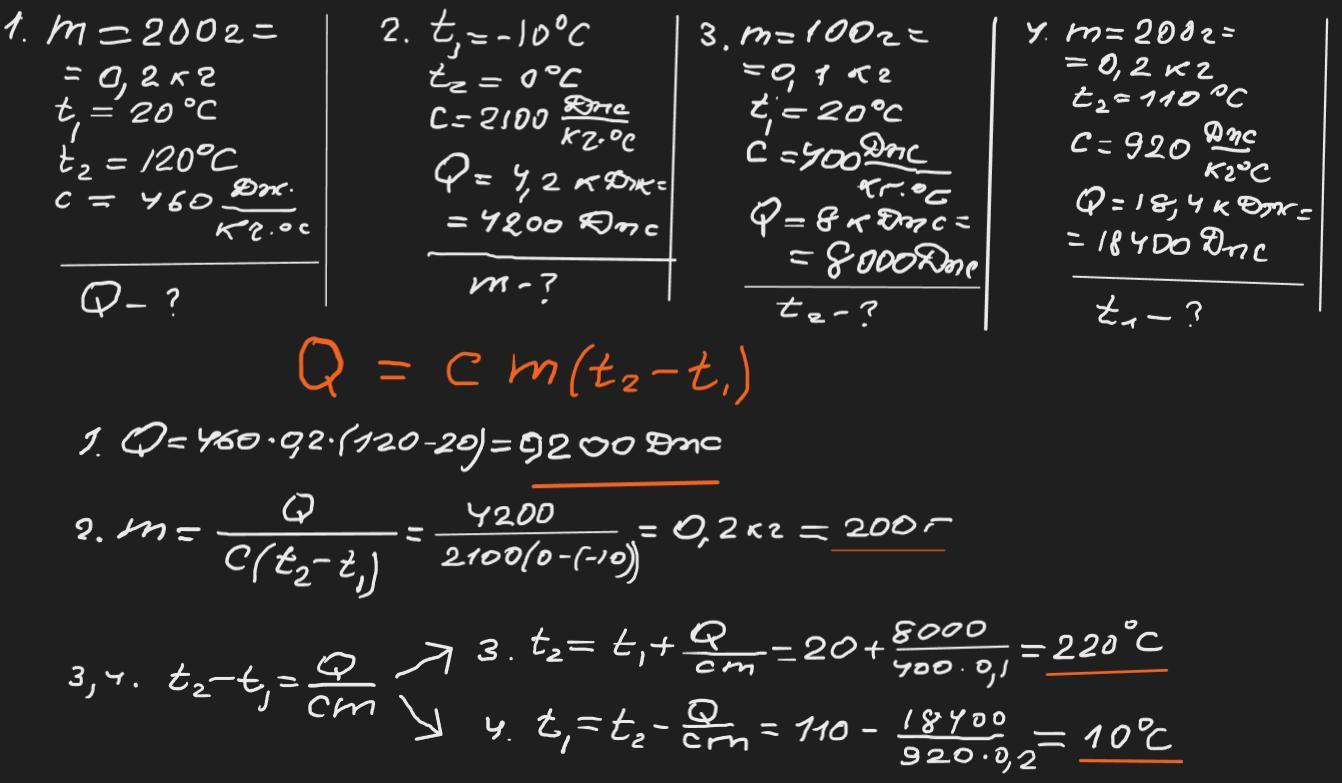 1. m = 200г =
= 0,2 кг
t₁ = 20°C
t₂ = 120°C
c = 460 Дж/кг·°C
Q - ?
2. t₁ = -10°C
t₂ = 0°C
C = 2100 Дж/кг·°C
Q = 4,2 кДж =
= 4200 Дж
m - ?
3. m = 100г =
= 0,1 кг
t₁ = 20°C
C = 400 Дж/кг·°C
Q = 8 кДж =
= 8000 Дж
t₂ - ?
4. m = 200г =
= 0,2 кг
t₂ = 110°C
C = 920 Дж/кг°C
Q = 18,4 кДж =
= 18400 Дж
t₁ - ?
Q = c m(t₂ - t₁)
1. Q = 460·0,2·(120-20) = 9200 Дж
2. m = Q/C(t₂-t₁) = 4200/2100(0-(-10)) = 0,2 кг = 200г
3,4. t₂-t₁ = Q/cm
3. t₂ = t₁ + Q/cm = 20 + 8000/400·0,1 = 220°C
4. t₁ = t₂ - Q/cm = 110 - 18400/920·0,2 = 10°C